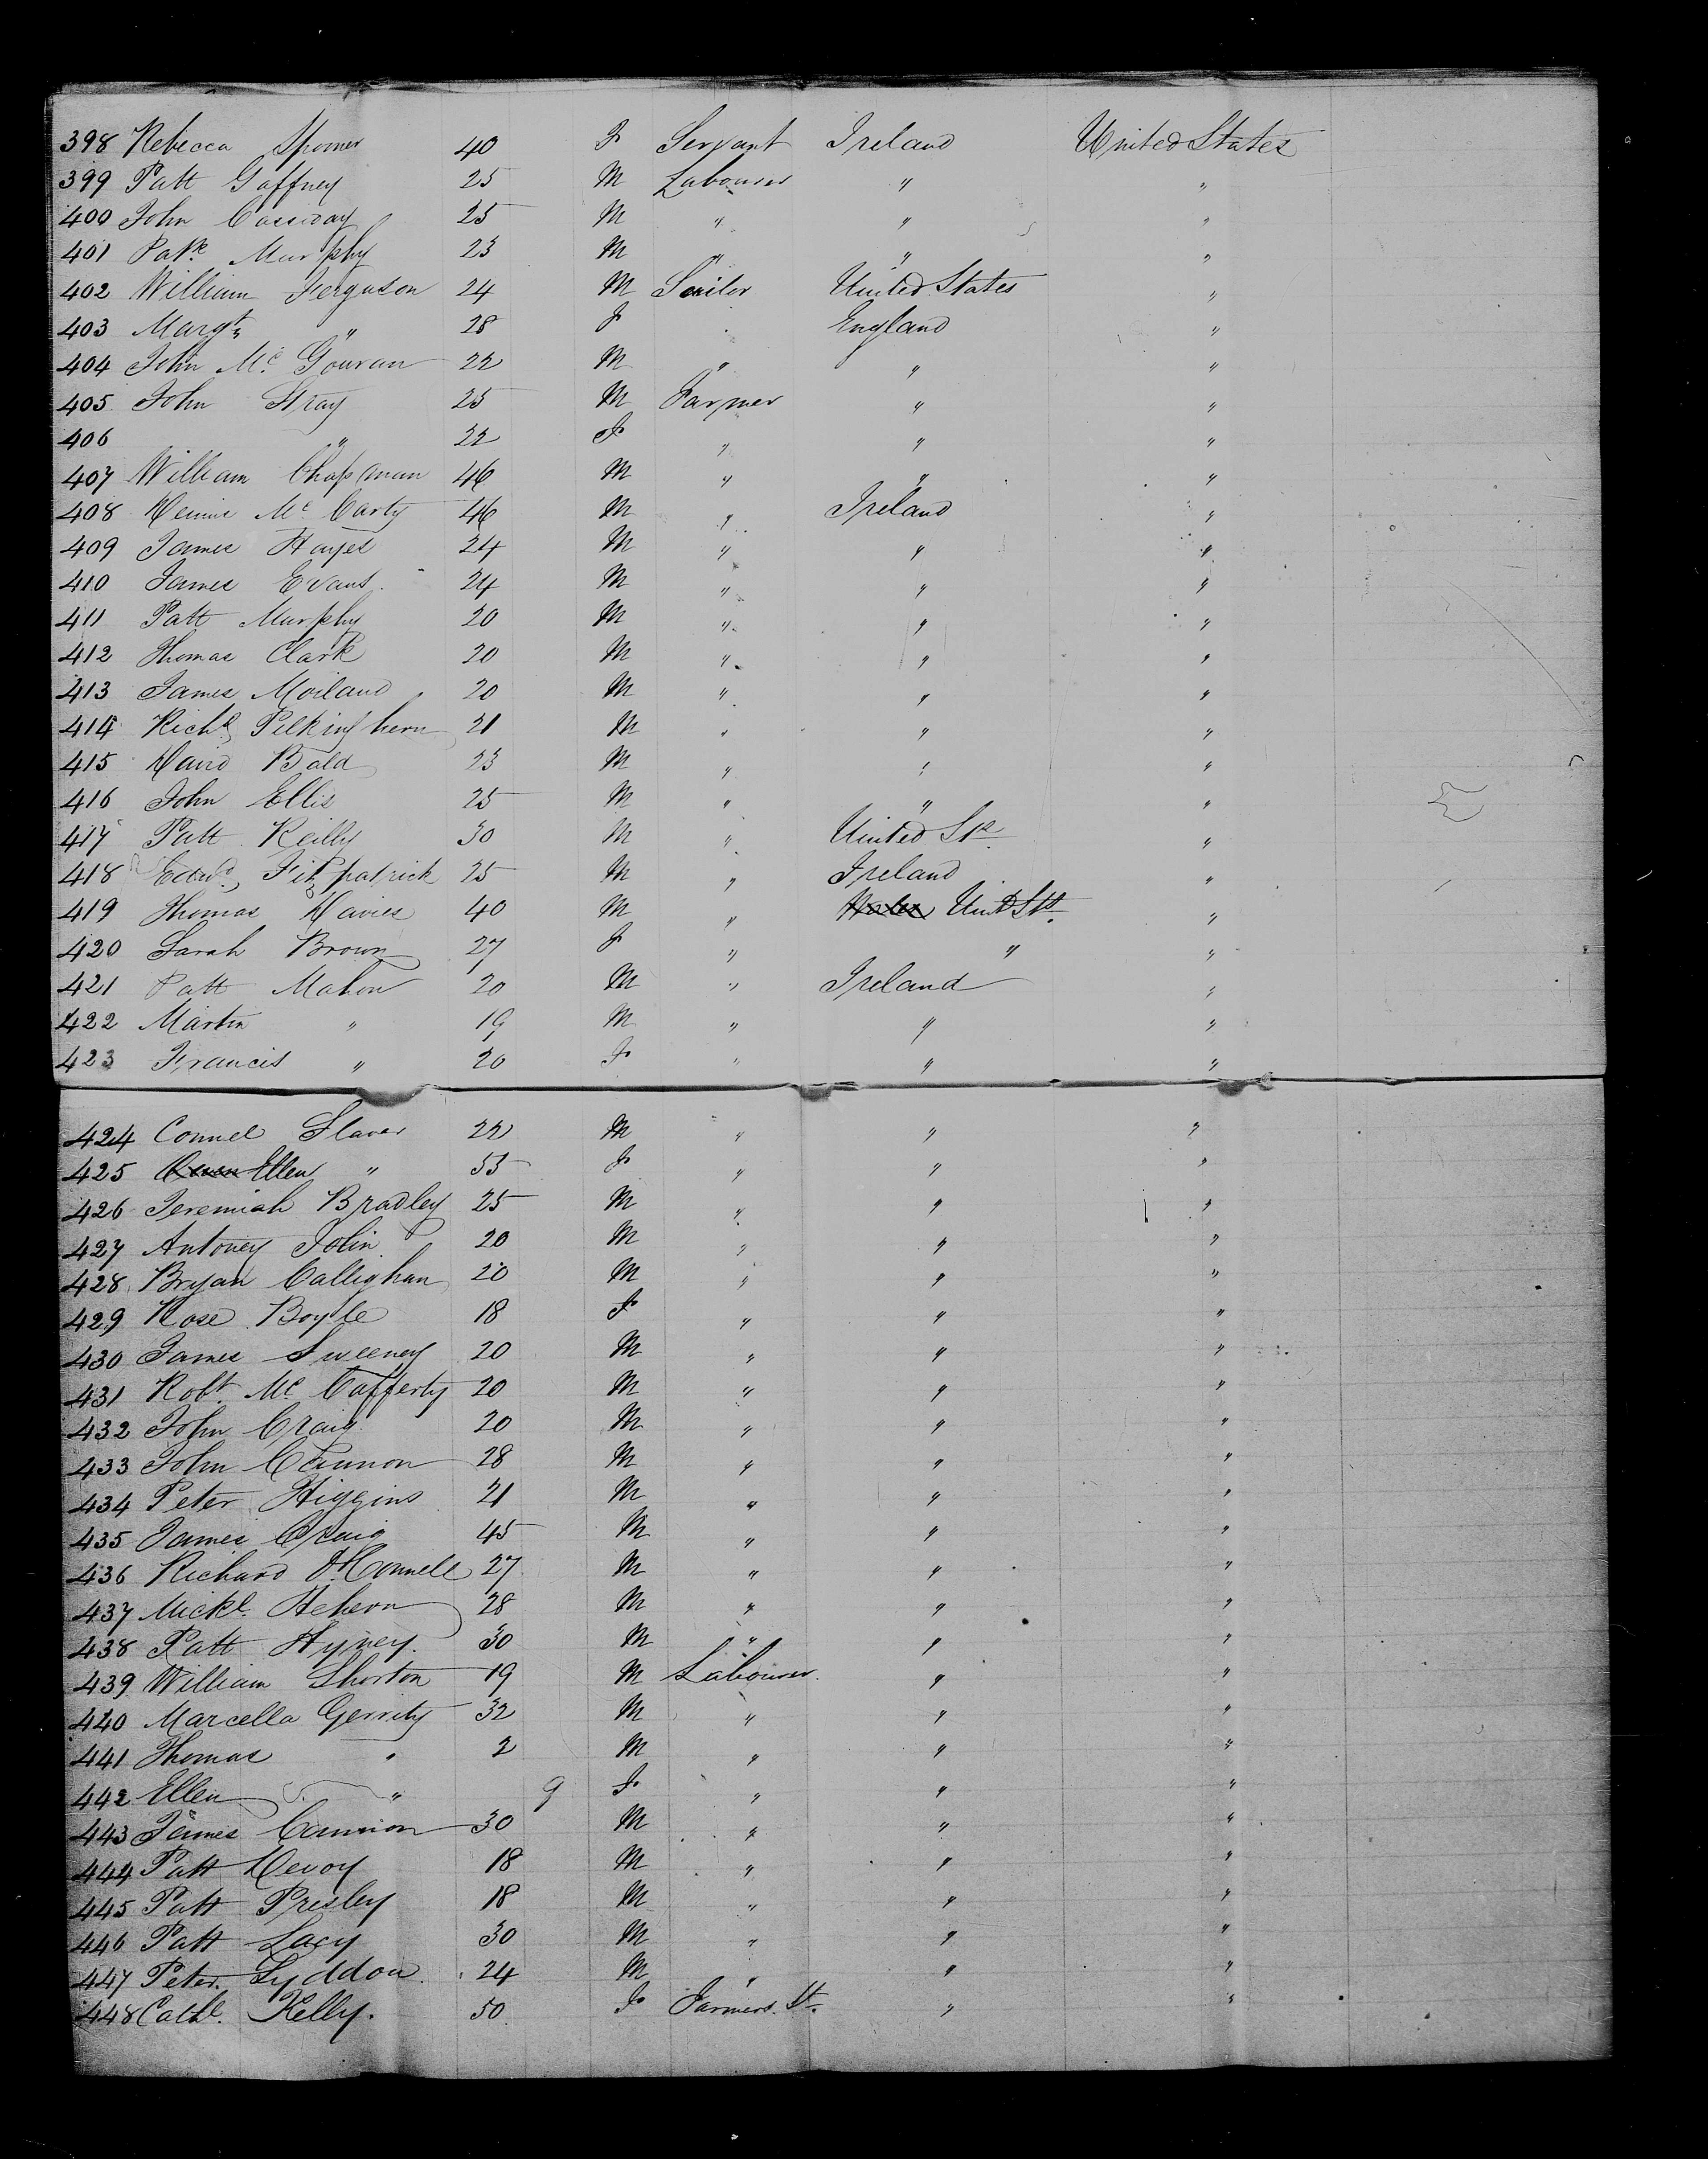 398 Rebecca Spooner 40 F Servant Ireland United States
399 Patt Gaffney 25 M Labourer " "
400 John Cassiday 25 M " " "
401 Patk. Murphy 23 M " " "
402 William Ferguson 24 M Sailor United States "
403 Margt. " 28 F England "
404 John Mc. Gouran 22 M " " "
405 John Stray 25 M Farmer " "
406 " 22 F " " "
407 William Chapman 46 M " " "
408 Dennis Mc Carty 46 M " Ireland "
409 James Hayes 24 M " " "
410 James Evans 24 M " " "
411 Patt Murphy 20 M " " "
412 Thomas Clark 20 M " " "
413 James Moiland 20 M " " "
414 Richd. 21 M " " "
415 David Bald 23 M " " "
416 John Ellis 25 M " " "
417 Patt Reilly 30 M " United Sts. "
418 Edwd. Fitzpatrick 25 M " Ireland "
419 Thomas Davies 40 M " Wales Unitd Sts. "
420 Sarah Brown 27 F " " "
421 Patt Mahon 20 M " Ireland "
422 Martin " 19 M " " "
423 Francis " 20 F " " "
424 Connel Slaver 22 M " " "
425 Owen Ellen " 55 F " " "
426 Jeremiah Bradley 25 M " " "
427 Antoney Tolin 20 M " " "
428 Bryan Callighan 20 M " " "
429 Rose Boyle 18 F " " "
430 James Sweeney 20 M " " "
431 Robt. Mc. Cafferty 20 M " " "
432 John Craig 20 M " " "
433 John Cannon 28 M " " "
434 Peter Higgins 21 M " " "
435 James Craig 45 M " " "
436 Richard O'Connell 27 M " " "
437 Mickl. Hehern 28 M " " "
438 Patt Hyney. 30 M " " "
439 William Shorton 19 M Labourer. " "
440 Marcella Gerrity 32 M " " "
441 Thomas " 2 M " " "
442 Ellen " 9 F " " "
443 James Cannon 30 M " " "
444 Patt Devoy 18 M " " "
445 Patt Presley 18 M " " "
446 Patt Lacy 30 M " " "
447 Peter Lyddon 24 M " " "
448 Cathe. Kelly. 50 F Farmers Wt. " "